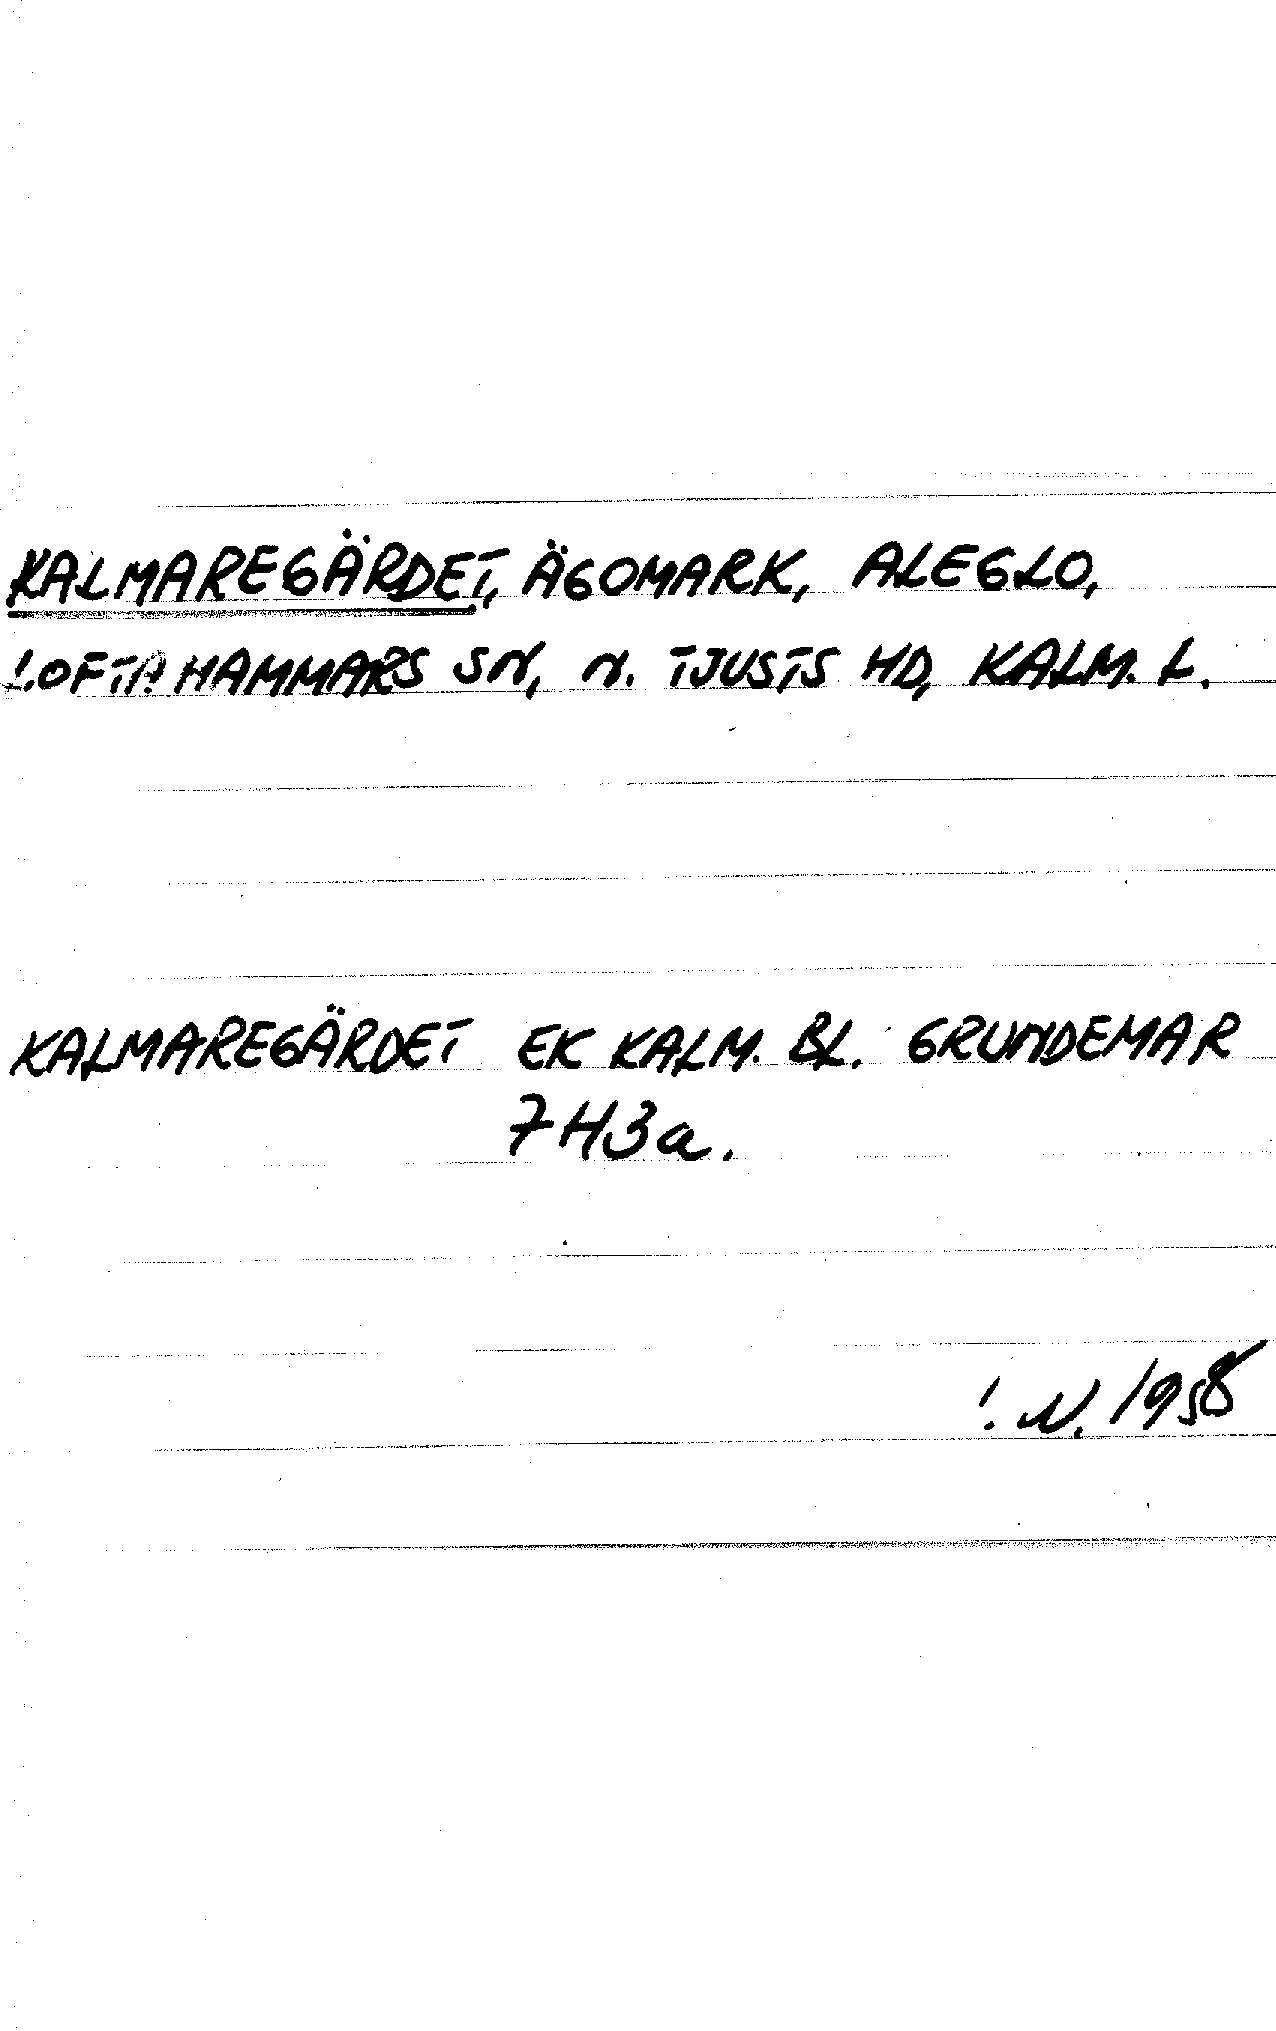 KALMAREGÄRDET, ÄGOMARK, ALEGLO,
LOFTAHAMMARS SN, N. TJUSTS HD, KALM. L.
KALMAREGÄRDET EK KALM. BL. GRUNDEMAR
7H3a.
!. N. 1958